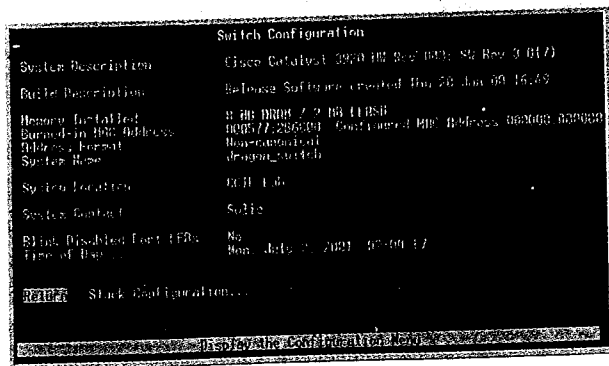 Switch Configuration
System Description Cisco Catalyst 3920 HW Rev 003; SW Rev 3.0(7)
Build Description Release Software created Thu 20 Jan 00 16:49
Memory Installed 8 MB DRAM / 2 MB FLASH
Burned-in MAC Address Configured MAC Address 000000:000000
Address Format Non-canonical
System Name dragon_switch
System Location CCIE Lab
System Contact Solie
Blink Disabled Port LEDs No
Time of Day... Mon, July 2, 2001
Return Stack Configuration...
Display the Configuration Menu